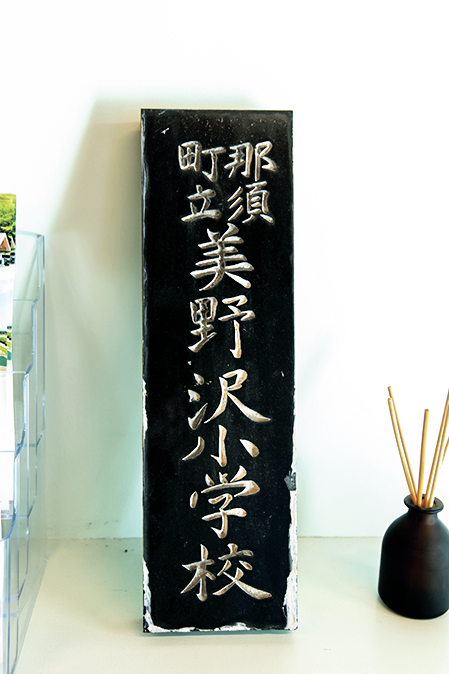 那須
町立
美野沢小学校